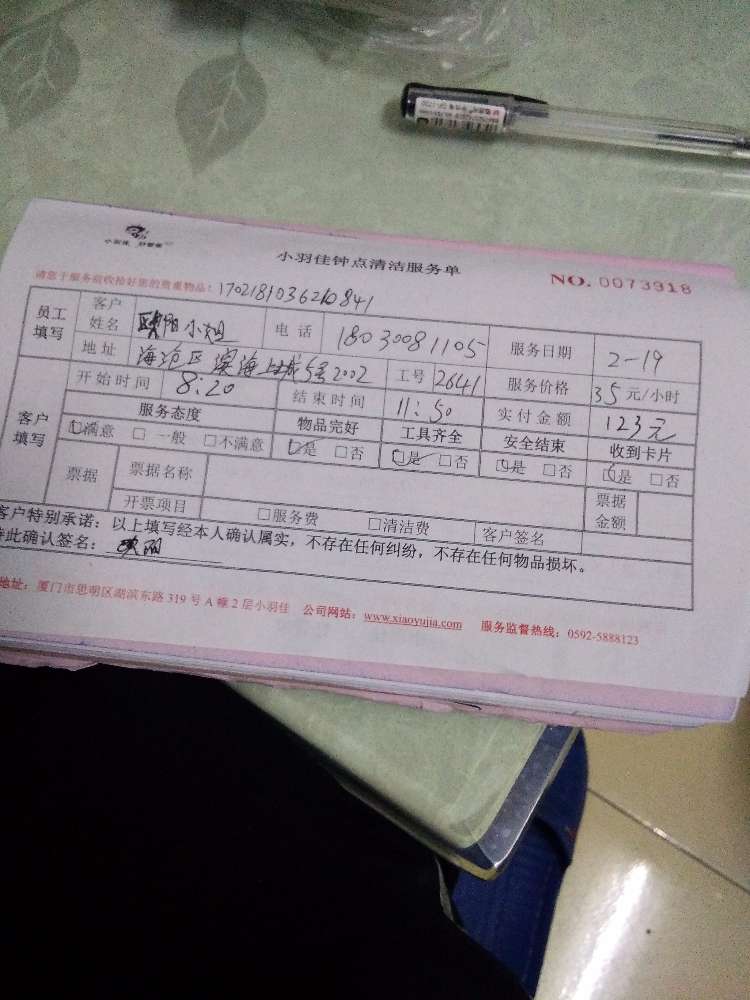 小羽佳 好管家
小羽佳钟点清洁服务单
NO. 0073918
请您于服务前收拾好您的贵重物品: 1702181036210841
员工填写 客户姓名 欧阳小姐 电话 18030081105 服务日期 2-19
地址 海沧区滨海上城5号2002 工号 2641 服务价格 35元/小时
客户填写 开始时间 8:20 结束时间 11:50 实付金额 123元
服务态度 物品完好 工具齐全 安全结束 收到卡片
☑满意 □一般 □不满意 ☑是 □否 ☑是 □否 ☑是 □否 ☑是 □否
票据 票据名称 票据金额
开票项目 □服务费 □清洁费 客户签名
客户特别承诺:以上填写经本人确认属实,不存在任何纠纷,不存在任何物品损坏。
特此确认签名: 欧阳
地址:厦门市思明区湖滨东路319号A幢2层小羽佳 公司网站:www.xiaoyujia.com 服务监督热线:0592-5888123